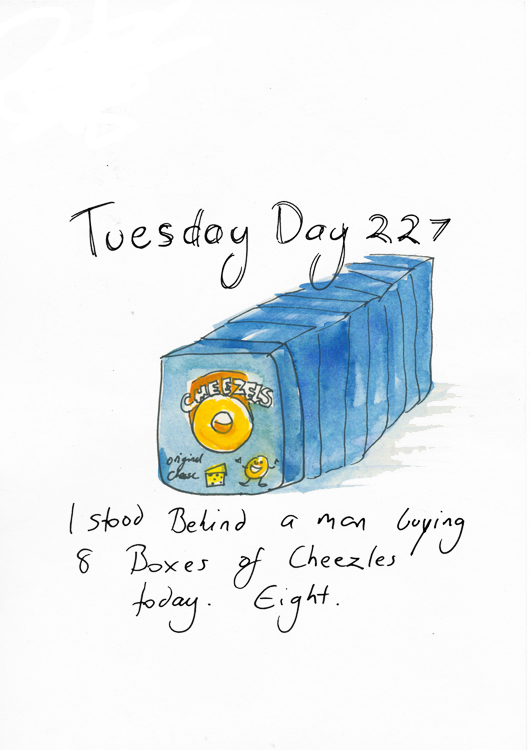 Tuesday Day 227
CHEEZELS
original
cheese
I stood Behind a man buying
8 Boxes of Cheezles
today. Eight.